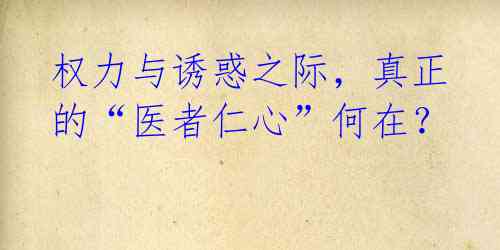 权力与诱惑之际，真正
的“医者仁心”何在？